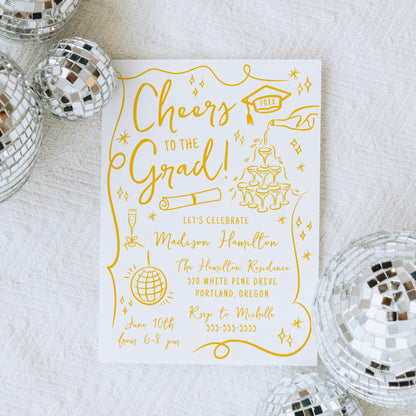 Cheers
TO THE
Grad!
20XX
LET'S CELEBRATE
Madison Hamilton
The Hamilton Residence
320 WHITE PINE DRIVE
PORTLAND, OREGON
Rsvp to Michelle
333-333-3333
June 10th
from 6-8 pm